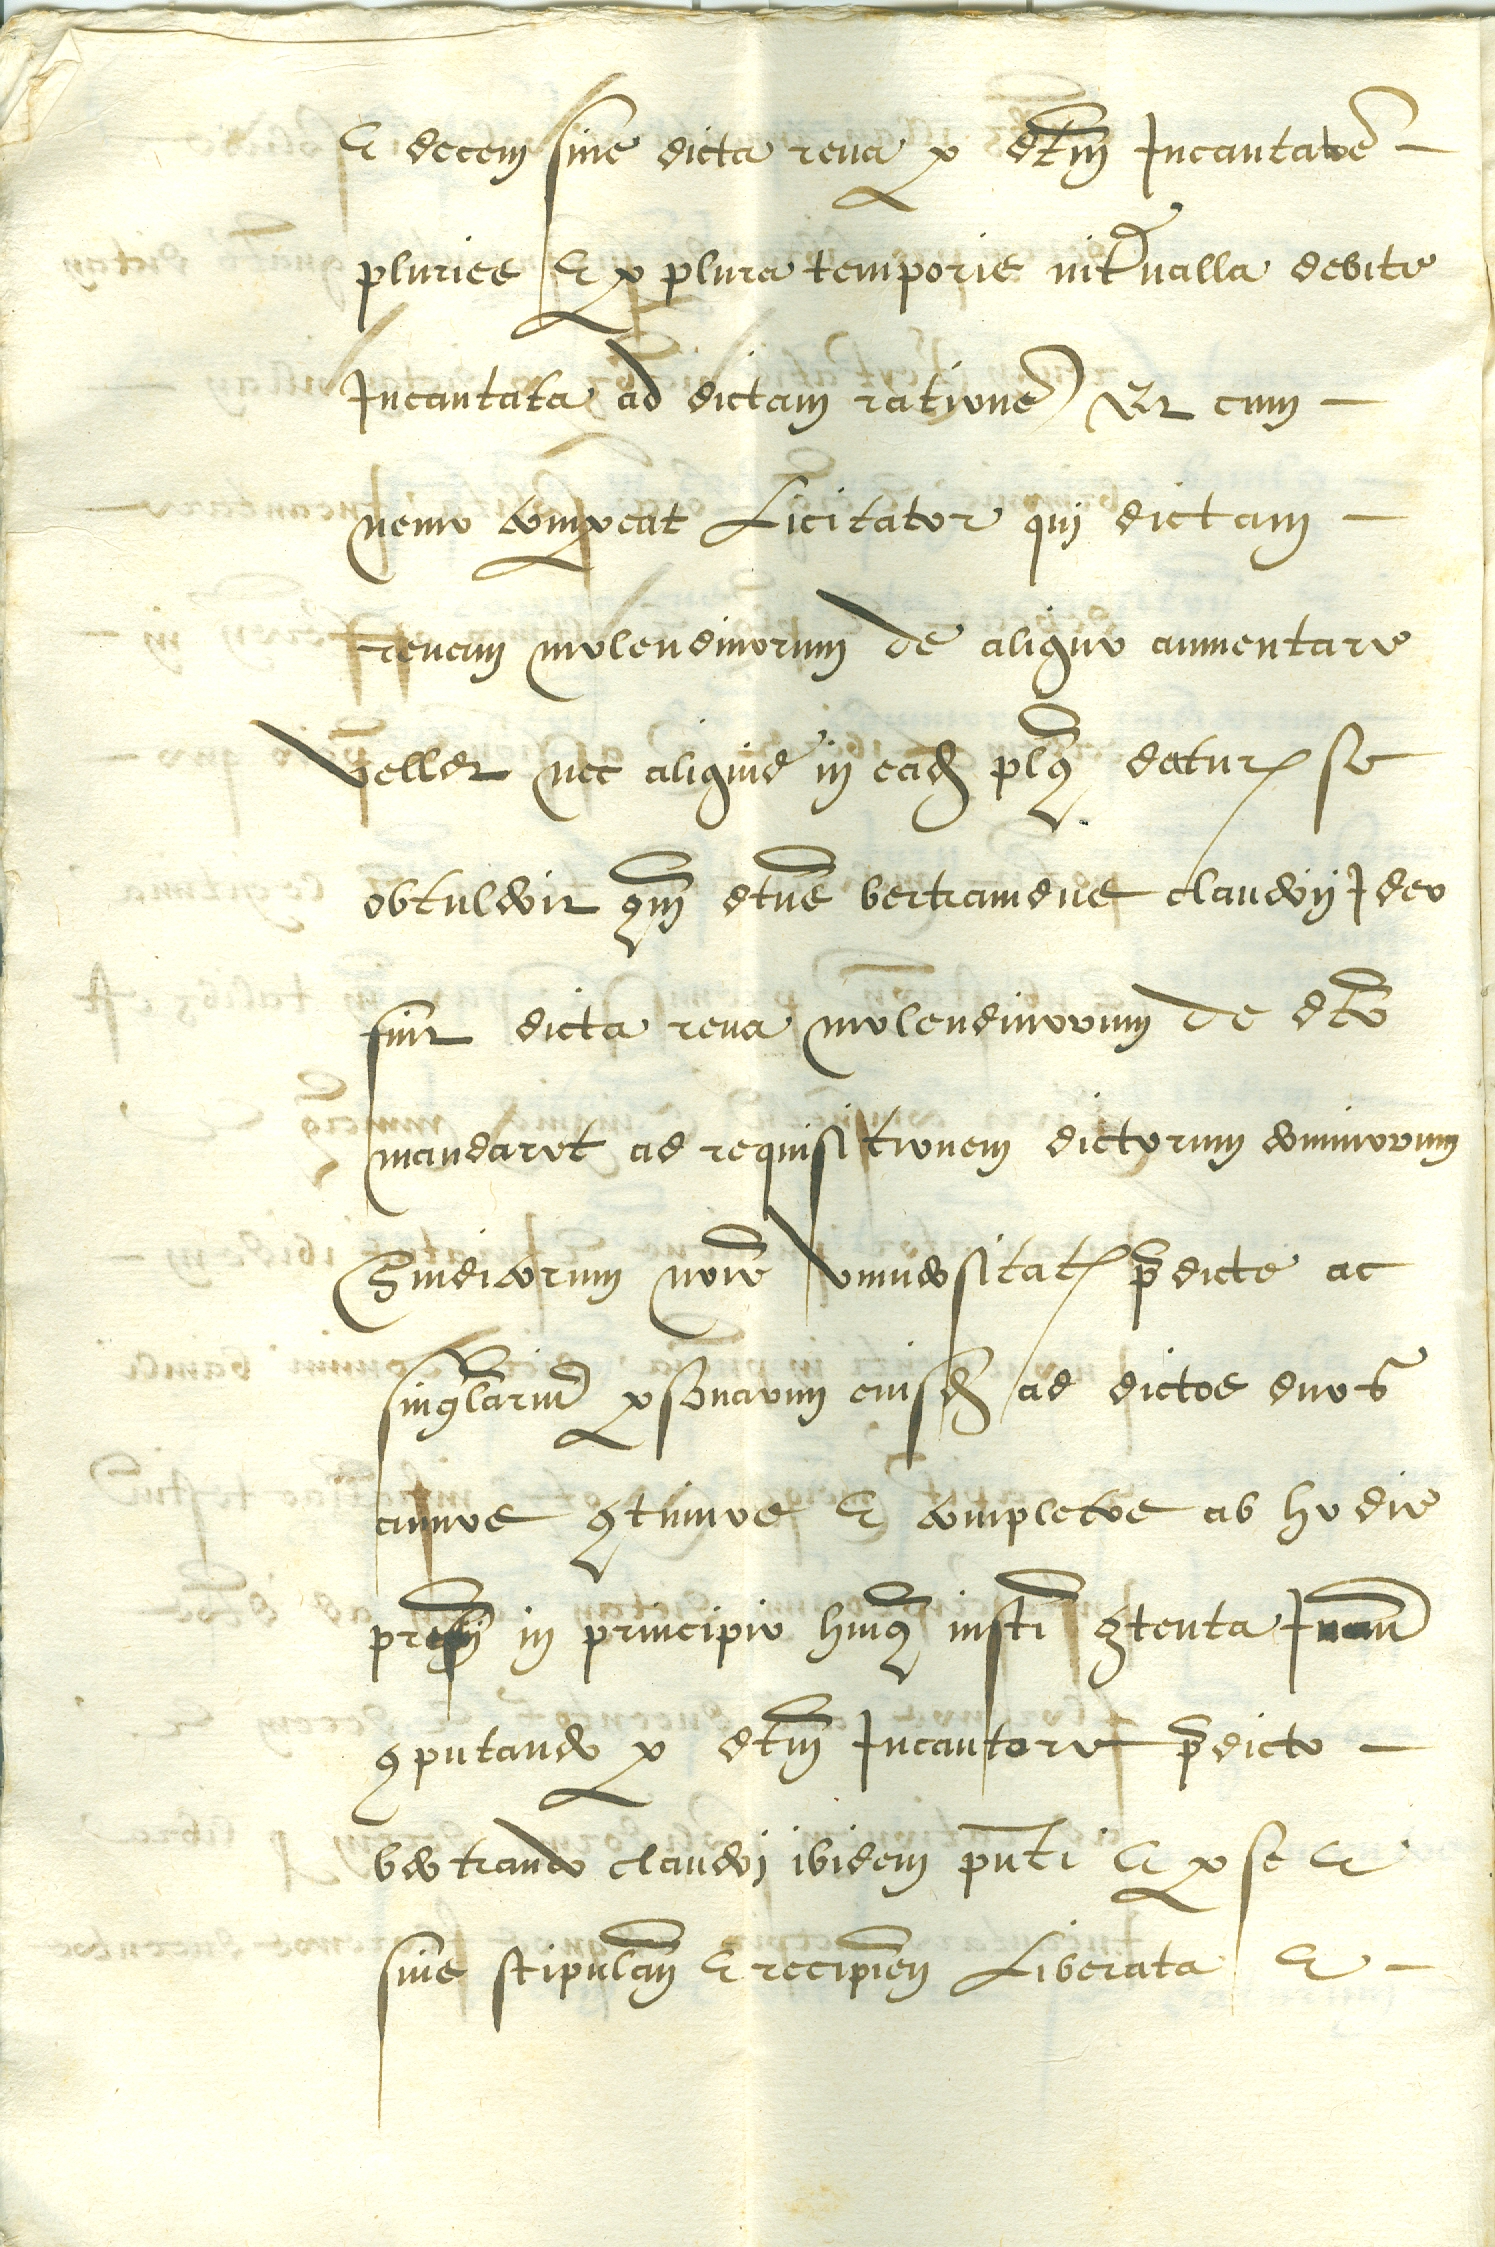 & decem sine dicta reva p dtm Incantatore
pluries & p plura temporis intervalla debite
Incantata ad dictam ratione Et cum
nemo compreat Licitator qui dictam
revam molendinorum de aliquo aumentare
vellet nec aliquid in eadem plus daturus se
obtulerit qm dtus bertrandus claudii Ideo
fuit dicta reva molendinorum de dto
mandato ad requisitionem dictorum dominorum
Sindicorum noie universitatis pdicte ac
singlarium psonarum eiusdem ad dictos duos
annos continuos & completos ab hodie
presenti in principio huius insti contenta In
computando p dtm Incantore pdicto
bertrando claudii ibidem pnti & p se &
suis stipulan & recipien Liberata &